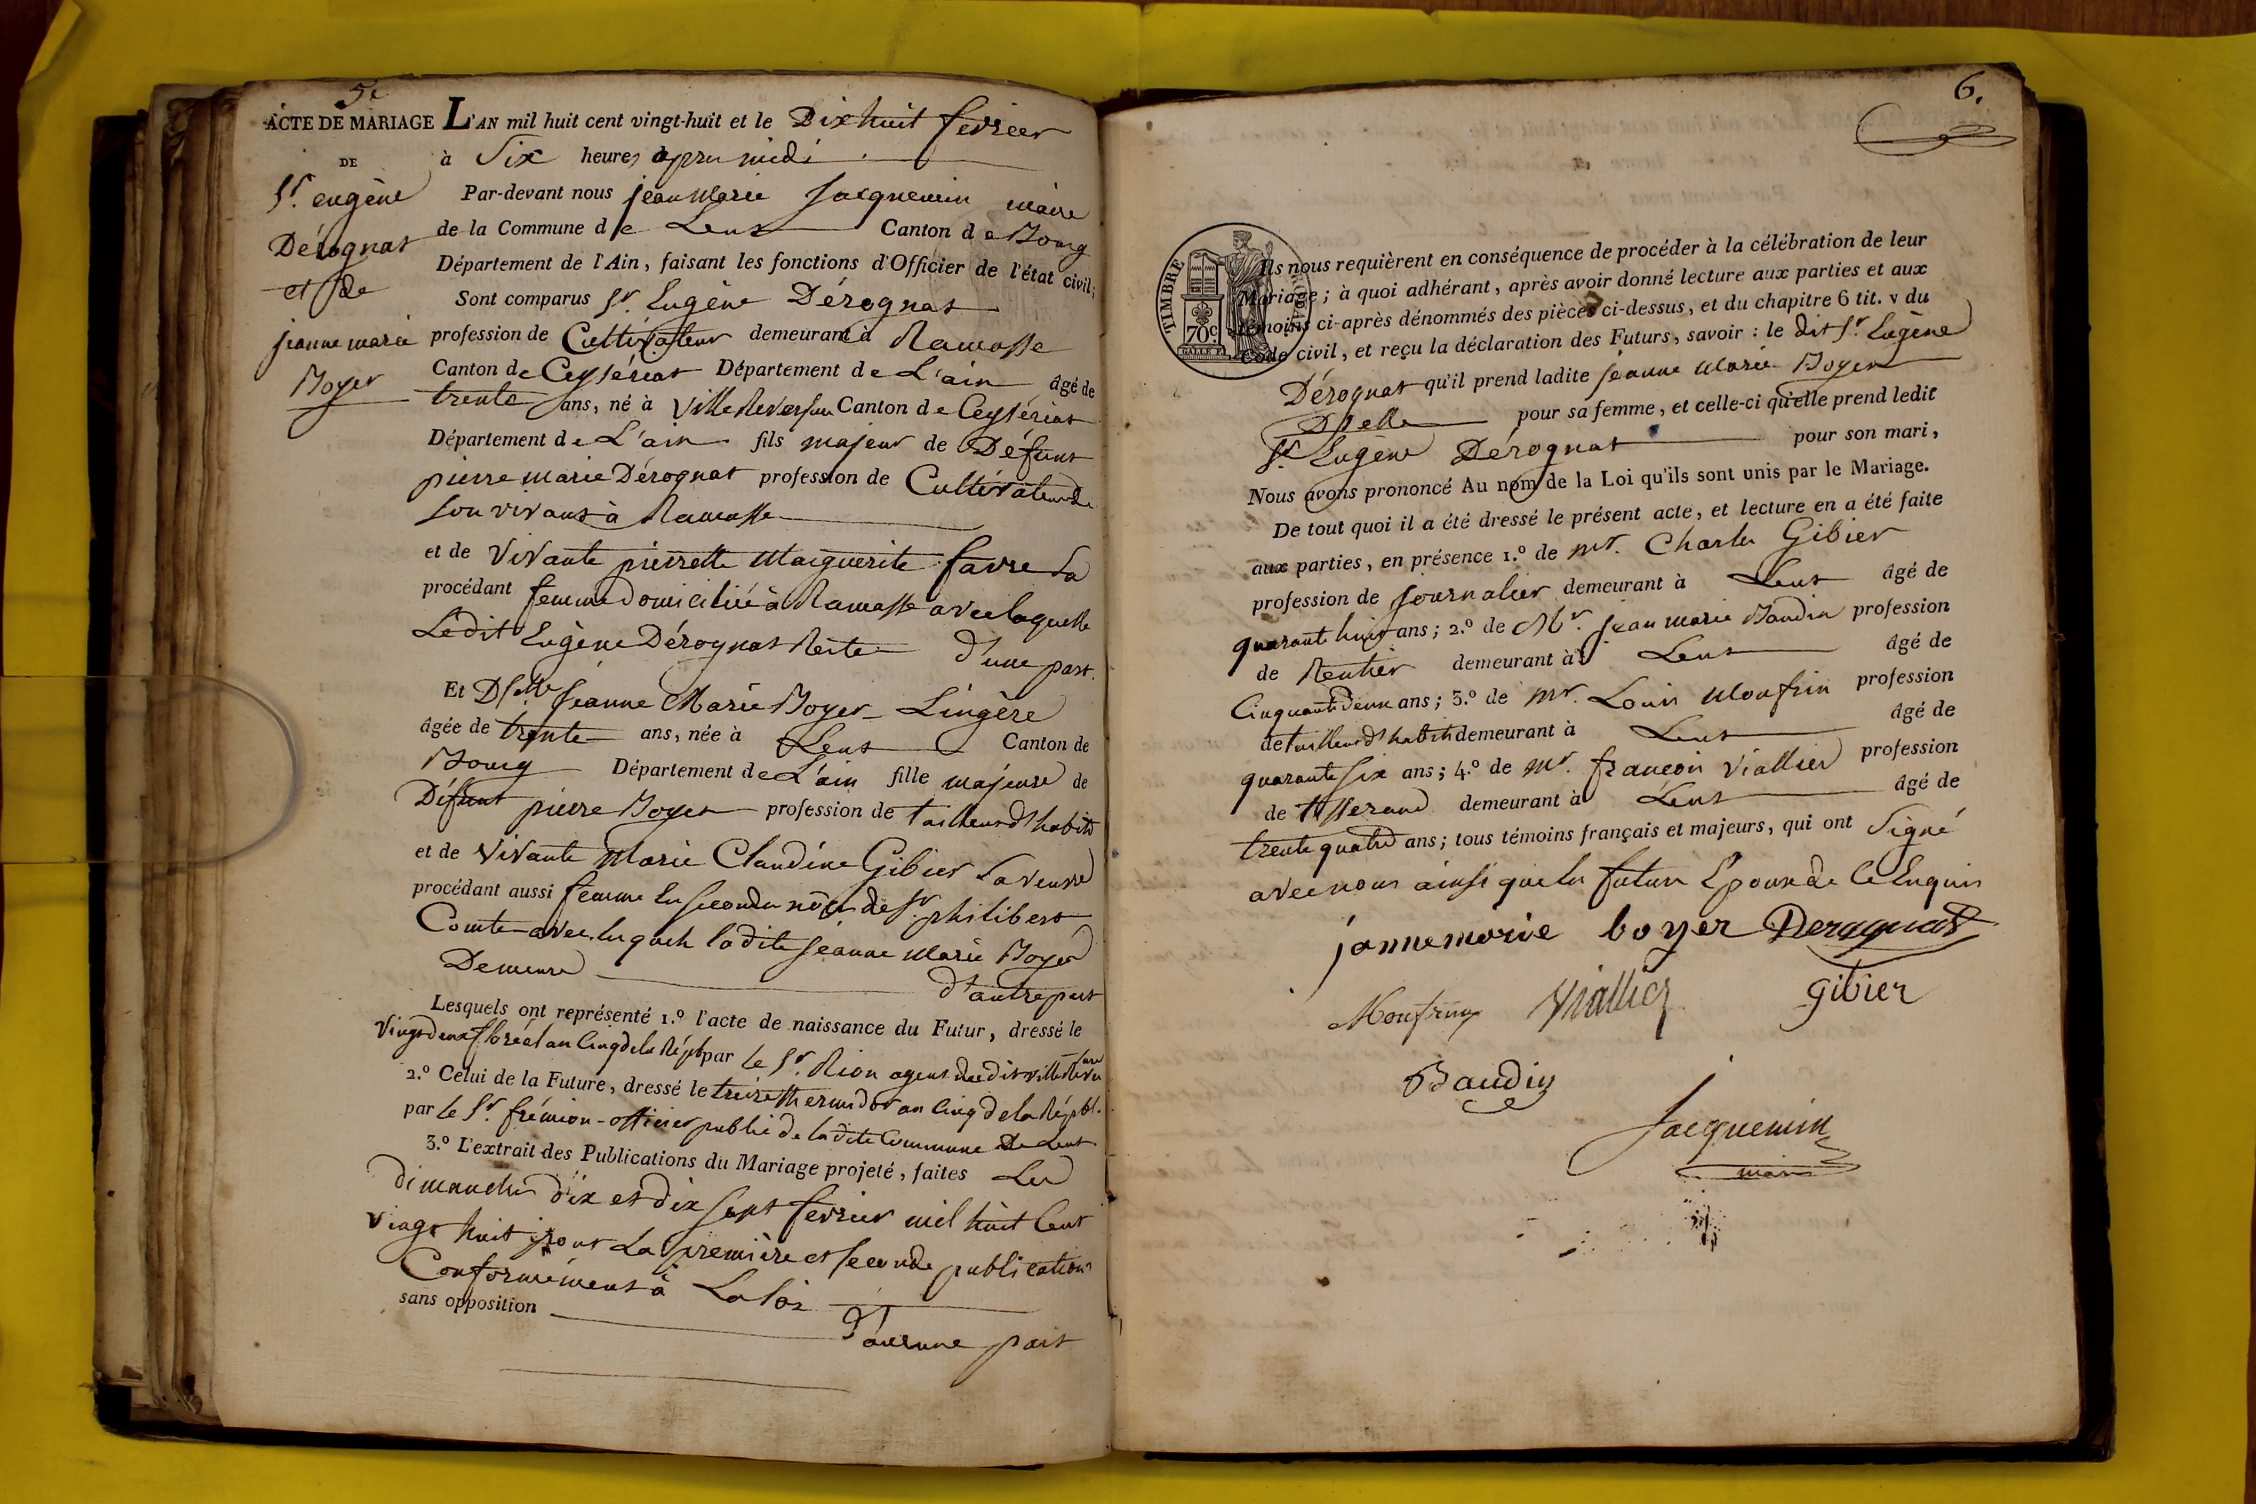 5e
ACTE DE MARIAGE
DE
Sr. eugène
Dérognat
et de
jeanne marie
Boyer
L'AN mil huit cent vingt-huit et le Dix huit fevrier
à Six heures après midi
Par-devant nous jean Marie Jacquemin maire
de la Commune de Lent Canton de Bourg
Département de l'Ain, faisant les fonctions d'Officier de l'état civil;
Sont comparus Sr. Eugène Dérognat
profession de Cultivateur demeurant à Ramasse
Canton de Ceyseriat Département de L'ain âgé de
trente ans, né à Ville Reversure Canton de Ceysériat
Département de L'ain fils majeur de Défunt
pierre marie Dérognat profession de Cultivateur de
son vivant à Ramasse
et de Vivante pierrette Marguerite favre sa
procédant femme domiciliée à Ramasse avec laquelle
Ledit Eugène Dérognat Reste d'une part.
Et Dslle Jeanne Marie Boyer Lingère
âgée de trente ans, née à Lent Canton de
Bourg Département de L'ain fille majeure de
Défunt pierre Boyer profession de tailleur d'habits
et de Vivante Marie Claudine Gibier sa veuve
procédant aussi femme en seconde noce de Sr. philibert
Comte avec lesquels ladite jeanne Marie Boyer
Demeure d'autre part
Lesquels ont représenté 1.º l'acte de naissance du Futur, dressé le
Vingt deux floréal an Cinq de la Répb par le Sr. Rion agent dudit ville Reversure
2.º Celui de la Future, dressé le treize thermidor an Cinq de la Républ.
par le Sr. frémion officier public de la dite Commune De Lent
3.º L'extrait des Publications du Mariage projeté, faites Les
dimanches dix et dix sept fevrier mil huit Cent
Vingt huit pour La première et seconde publications
Conformément à La loi
sans opposition d'aucune part
6.
TIMBRE ROYAL
70 c
Ils nous requièrent en conséquence de procéder à la célébration de leur
Mariage; à quoi adhérant, après avoir donné lecture aux parties et aux
témoins ci-après dénommés des pièces ci-dessus, et du chapitre 6 tit. v du
Code civil, et reçu la déclaration des Futurs, savoir: le dit Sr. Eugène
Dérognat qu'il prend ladite jeanne Marie Boyer
Dslle pour sa femme, et celle-ci qu'elle prend ledit
Sr. Eugène Dérognat pour son mari,
Nous avons prononcé Au nom de la Loi qu'ils sont unis par le Mariage.
De tout quoi il a été dressé le présent acte, et lecture en a été faite
aux parties, en présence 1.º de mr. Charles Gibier
profession de journalier demeurant à Lent âgé de
quarante huit ans; 2.º de Mr. jean marie Baudin profession
de Rentier demeurant à Lent âgé de
Cinquante deux ans; 3.º de mr. Louis Monfrin profession
de tailleur d'habits demeurant à Lent âgé de
quarante six ans; 4.º de mr. françois Viallier profession
de tisserand demeurant à Lent âgé de
trente quatre ans; tous témoins français et majeurs, qui ont Signé
avec nous ainsi que les futurs Epoux de Ce Enquis
jannemarie boyer Derognat
Monfrin Viallier gibier
Baudin
Jacquemin
maire